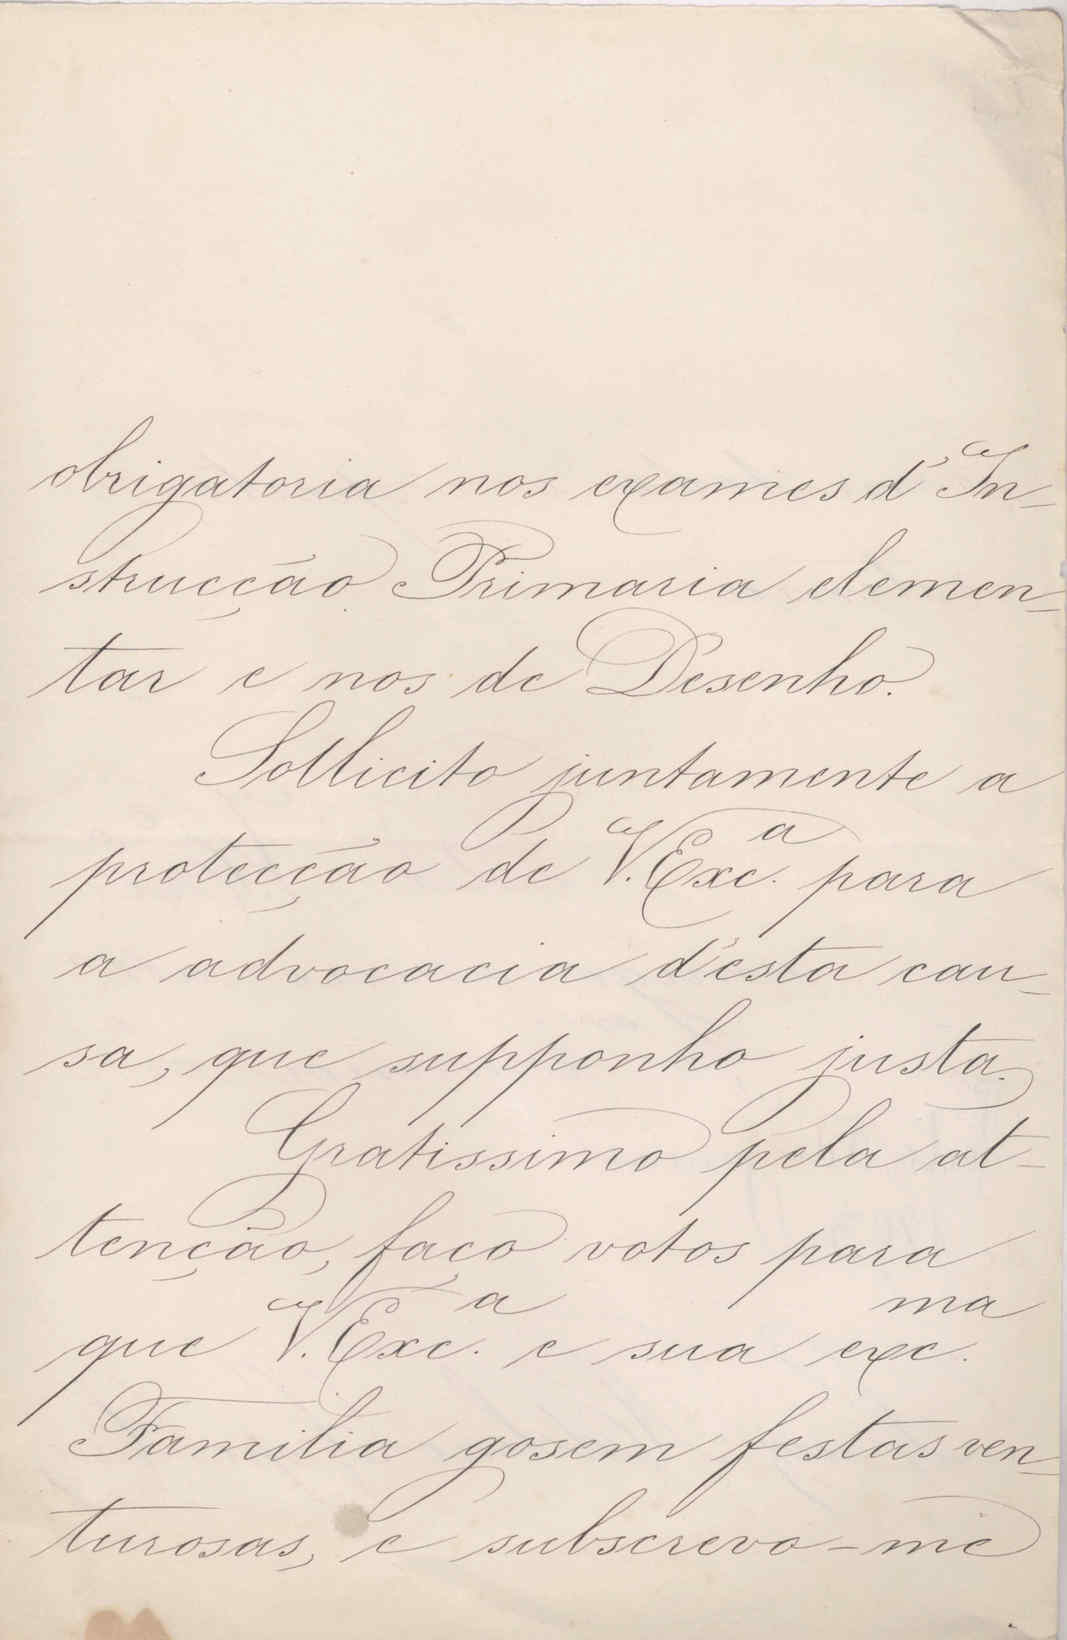 obrigatoria nos exames d'In-
strucção Primaria elemen-
tar e nos de Desenho.
Sollicito juntamente a
protecção de V. Exc.ª para
a advocacia d'esta cau-
sa, que supponho justa.
Gratissimo pela at-
tenção, faço votos para
que V. Exc.ª e sua exc.ma
Familia gosem festas ven-
turosas, e subscrevo-me